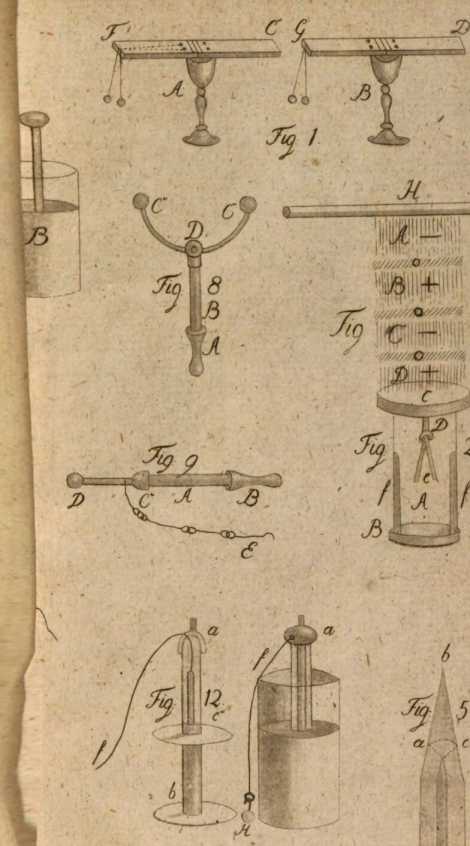 F C G D
A B
Fig 1
B
C C
D
Fig 8
B
A
H
A −
B +
Fig C −
D +
c
D
Fig 2
e
f A f
B
Fig 9
D C A B
E
a a
f
Fig 12
c
f
b
H
b
Fig 5
a c